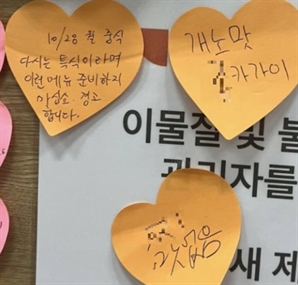 10/28 월 중식
다시는 특식이라며
이런메뉴 준비하지
마십쇼. 경고
합니다.
개노맛
카가이
이물질 및 불
관리자를
맛없음
새 제